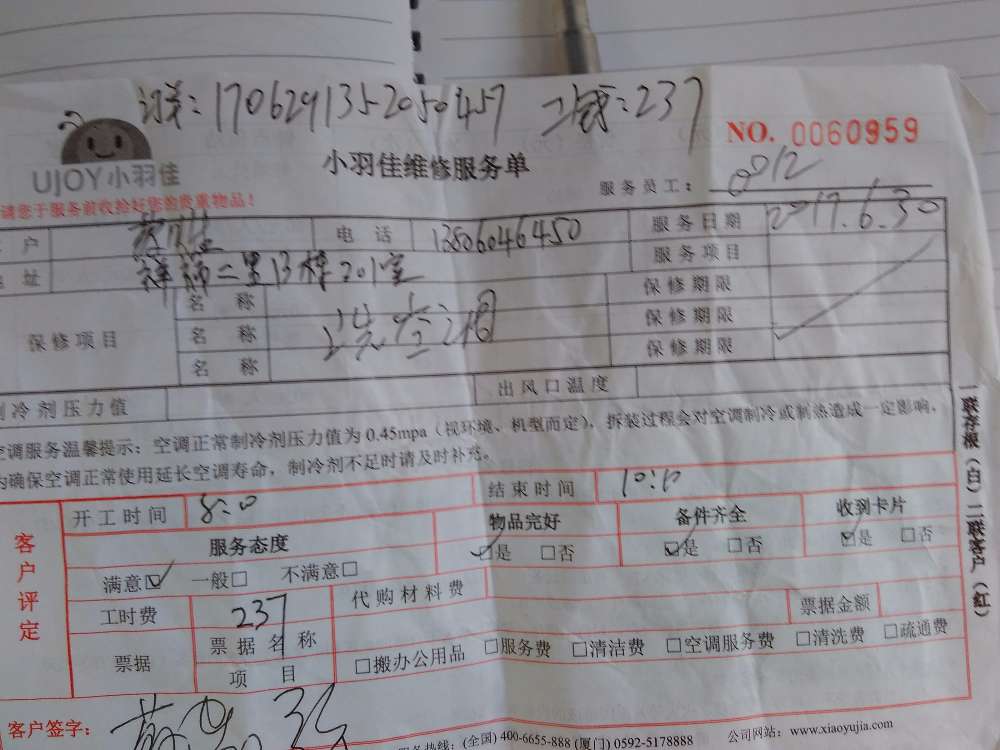 1706291352050457 237
NO. 0060959
UJOY小羽佳
小羽佳维修服务单
服务员工: 0812
请您于服务前收拾好您的贵重物品!
户 电话 13806046450 服务日期 2017.6.30
址 二里13栋201室 服务项目
保修项目 名称 保修期限
名称 洗空调 保修期限
名称 保修期限
冷剂压力值 出风口温度
空调服务温馨提示: 空调正常制冷剂压力值为0.45mpa(视环境、机型而定), 拆装过程会对空调制冷或制热造成一定影响,
为确保空调正常使用延长空调寿命, 制冷剂不足时请及时补充。
一联存根(白)二联客户(红)
客户评定
开工时间 8:00 结束时间 10:10
服务态度 物品完好 备件齐全 收到卡片
满意☑ 一般□ 不满意□ ☑是 □否 ☑是 □否 ☑是 □否
工时费 237 代购材料费 票据金额
票据 票据名称
项目 □搬办公用品 □服务费 □清洁费 □空调服务费 □清洗费 □疏通费
客户签字:
服务热线: (全国) 400-6655-888 (厦门) 0592-5178888 公司网站: www.xiaoyujia.com